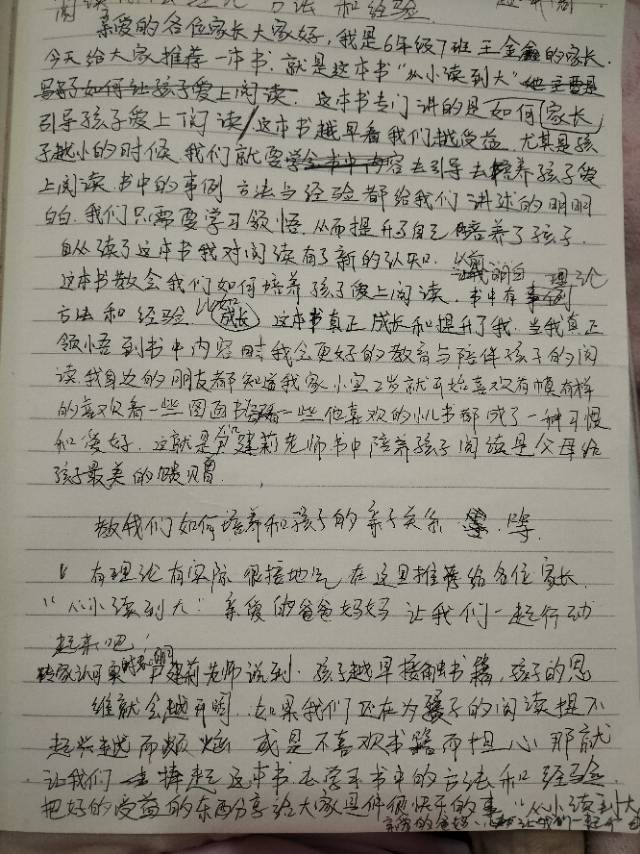 方法 和经验.
亲爱的各位家长大家好,我是6年级7班王金鑫的家长.
今天给大家推荐一本书.就是这本书"从小读到大"
如何让孩子爱上阅读.这本书专门讲的是如何家长
引导孩子爱上阅读/这本书越早看我们越受益.尤其是孩
子越小的时候.我们就要学全书中内容去引导去培养孩子爱
上阅读.书中的事例 方法与经验都给我们讲述的明明
白白.我们只需要学习领悟.从而提升了自己培养了孩子.
自从读了这本书我对阅读有了新的认知.
这本书教会我们如何培养孩子爱上阅读.书中有事例 理论
方法和经验.(成长)这本书真正成长和提升了我.当我真正
领悟到书中内容时我会更好的教育与陪伴孩子的阅
读.我身边的朋友都知道我家小宝2岁就开始喜欢有模有样
的喜欢看一些图画书 一些他喜欢的小人书都成了一种习惯
和爱好.这就是 建莉老师书中陪养孩子阅读是父母给
孩子最美的馈赠.
教我们如何培养和孩子的亲子关系 等.
有理论有实际 很接地气 在这里推荐给各位家长.
"从小读到大".亲爱的爸爸妈妈 让我们一起行动
起来吧!
建莉老师说到.孩子越早接触书籍,孩子的思
维就会越开明.如果我们还在为孩子的阅读提不
起兴趣而烦恼 或是不喜欢书籍而担心 那就
让我们 捧起这本书.去学习书中的方法和经验.
把好的受益的东西分享给大家是件很快乐的事."从小读到大
亲爱的爸妈 让我们一起行